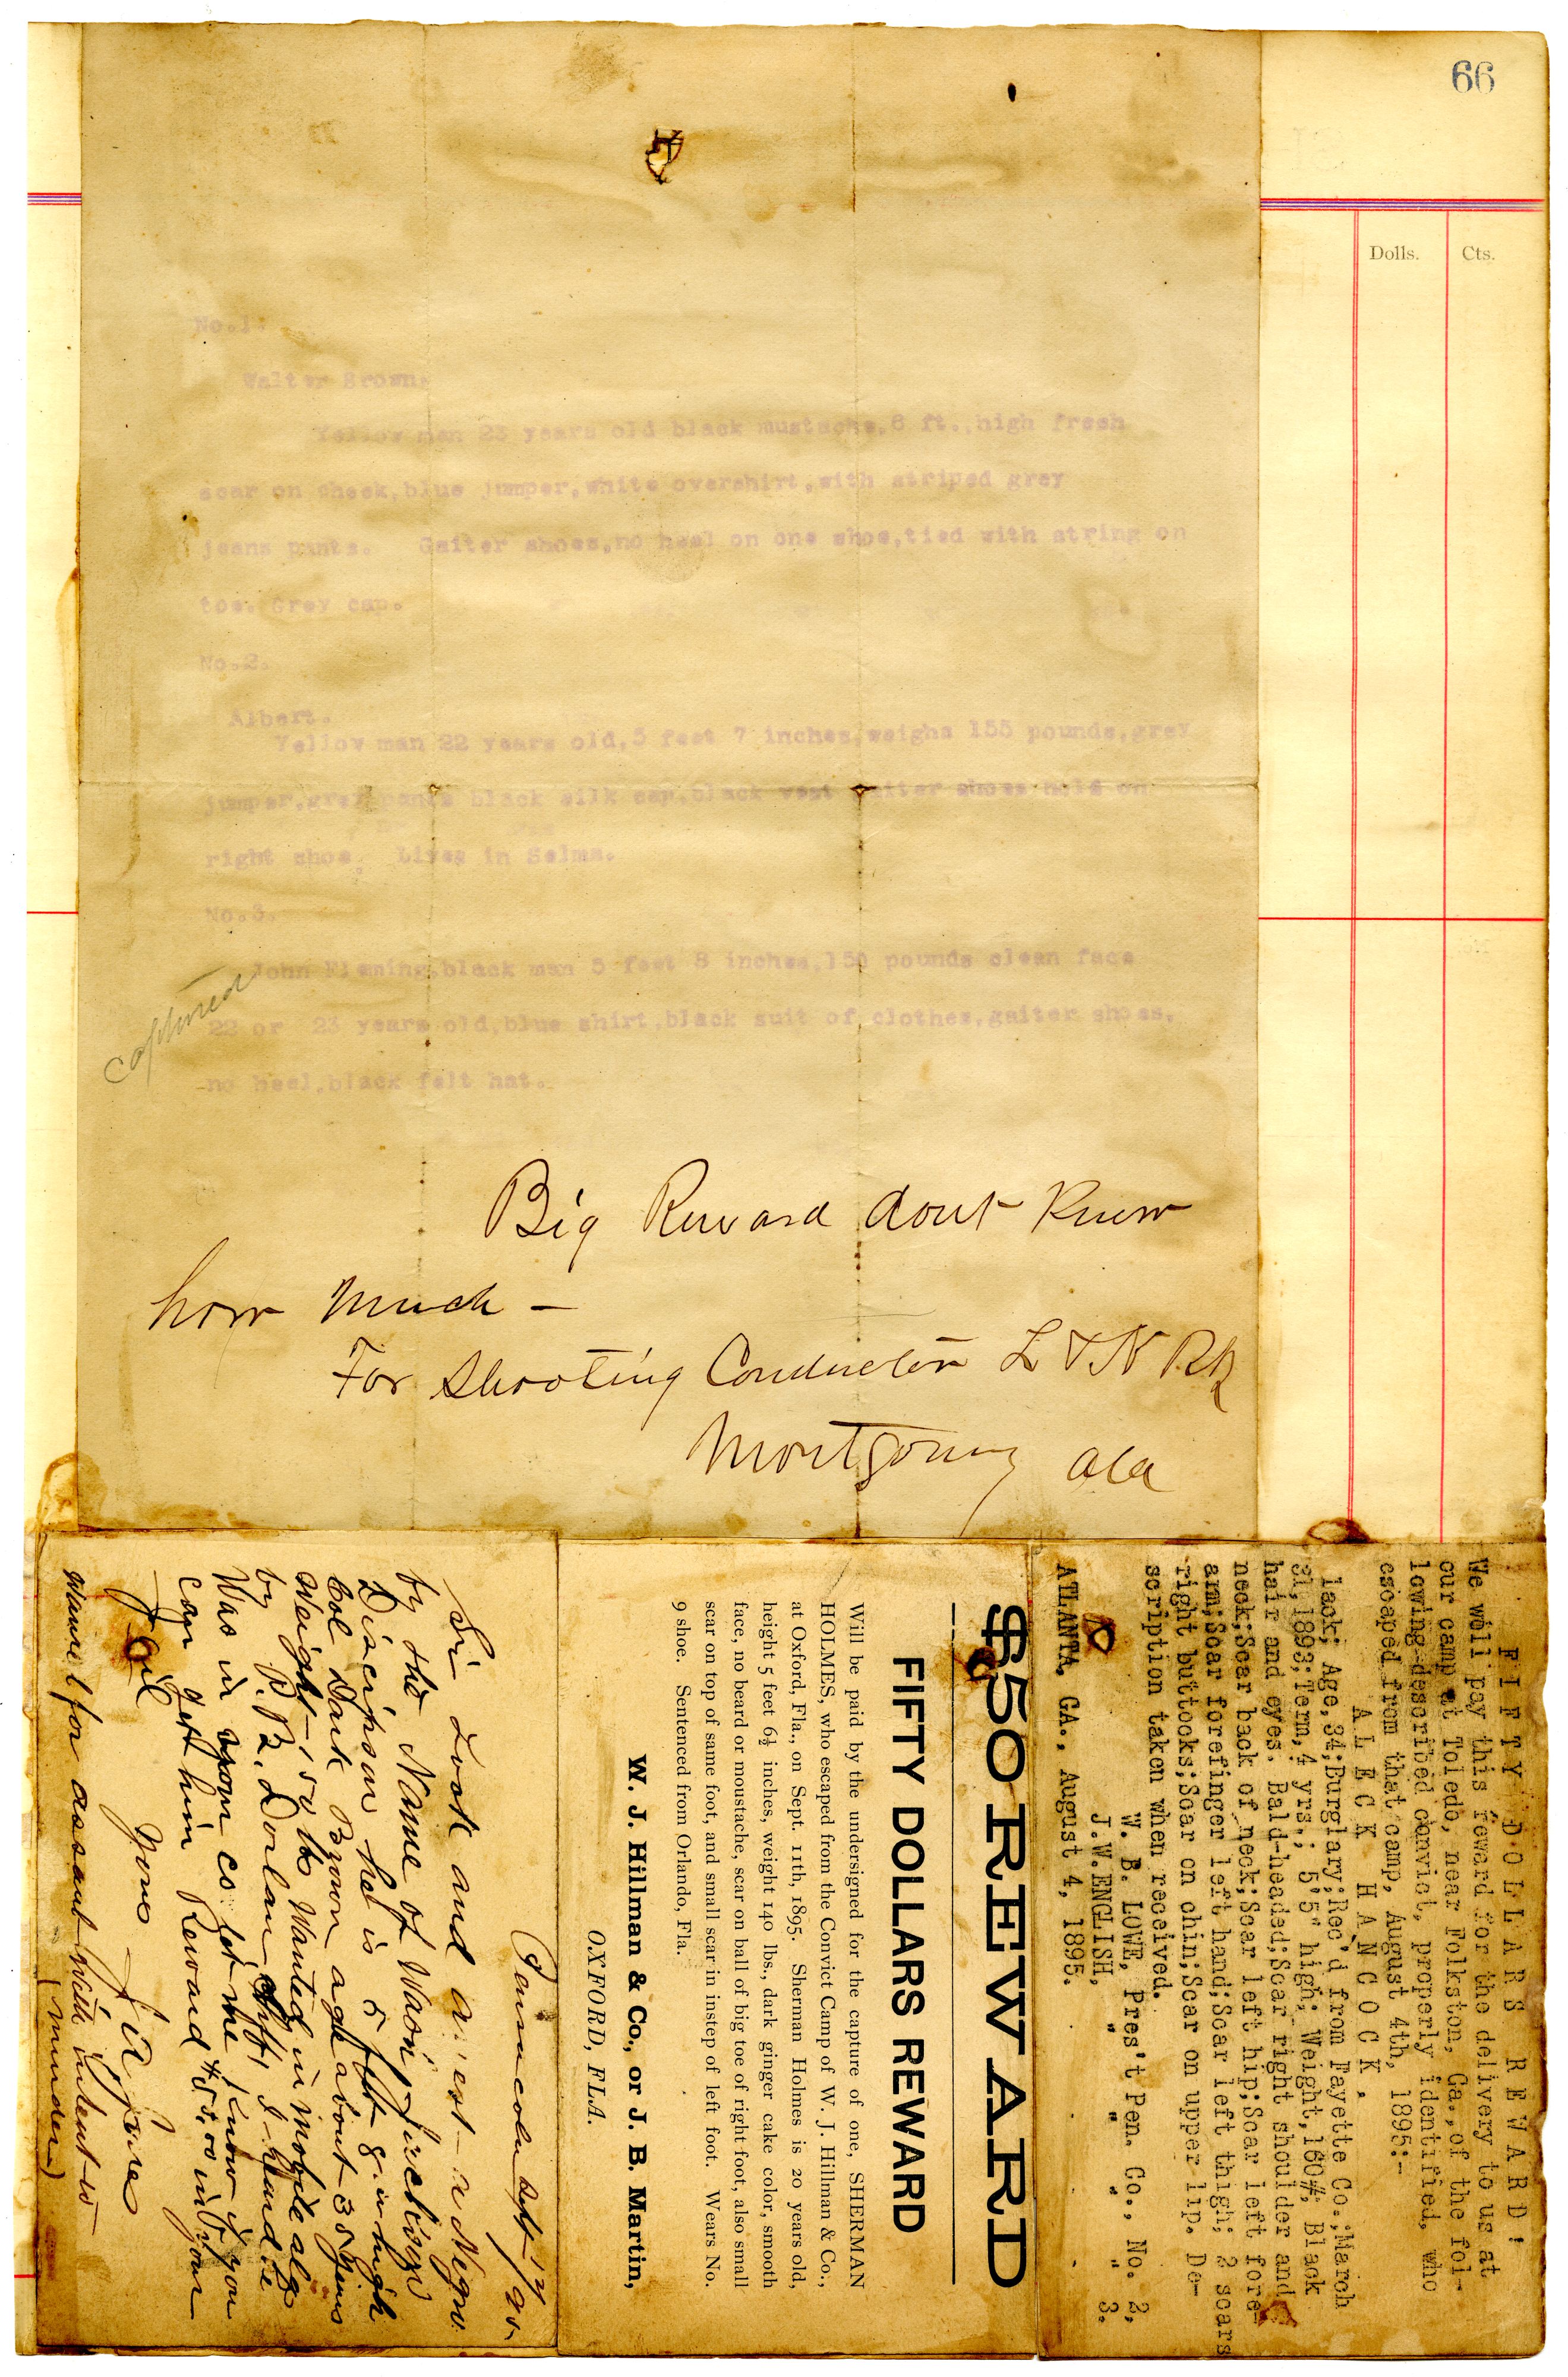 66
Dolls. Cts.
No.1.
Walter Brown.
Yellow man 23 years old black mustache,6 ft.,high fresh
scar on cheek,blue jumper,white overshirt,with striped grey
jeans pants. Gaiter shoes,no heel on one shoe,tied with string on
toe. Grey cap.
No.2.
Albert.
Yellow man 22 years old,5 feet 7 inches,weighs 155 pounds,grey
jumper,grey pants black silk cap,black vest gaiter shoes on
right shoe. Lives in Selma.
No.3.
John Fleming,black man 5 feet 8 inches,150 pounds clean face
22 or 23 years old,blue shirt,black suit of clothes,gaiter shoes,
no heel,black felt hat.
captured
Big Reward dont Know
how much –
For Shooting Conductor L & N RR
Montgomy ala
FIFTY DOLLARS REWARD!
We will pay this reward for the delivery to us at
our camp at Toledo, near Folkston, Ga., of the fol-
lowing-described convict, properly identified, who
escaped from that camp, August 4th, 1895:-
ALECK HANCOCK,
lack; Age,34;Burglary;Rec'd from Fayette Co.;March
31,1893;Term,4 yrs.; 5'5" high; Weight,160#; Black
hair and eyes. Bald-headed;Scar right shoulder and
neck;Scar back of neck;Scar left hip;Scar left fore-
arm;Scar forefinger left hand;Scar left thigh; 3 scars
right buttocks;Scar on chin;Scar on upper lip. De-
scription taken when received.
W. B. LOWE, Pres't Pen. Co., No. 2,
J.W.ENGLISH, " " " " 3.
ATLANTA, GA., August 4, 1895.
$50 REWARD
FIFTY DOLLARS REWARD
Will be paid by the undersigned for the capture of one, SHERMAN
HOLMES, who escaped from the Convict Camp of W. J. Hillman & Co.,
at Oxford, Fla., on Sept. 11th, 1895. Sherman Holmes is 20 years old,
height 5 feet 6½ inches, weight 140 lbs., dark ginger cake color, smooth
face, no beard or moustache, scar on ball of big toe of right foot, also small
scar on top of same foot, and small scar in instep of left foot. Wears No.
9 shoe. Sentenced from Orlando, Fla.
W. J. Hillman & Co., or J. B. Martin,
OXFORD, FLA.
Pensacola Sept
Sir Look and arrest a Negro
by the Name of
Discripson he is 5 foot 8 in high
Col Dark Brown age about 35 years
Weight 150 lb Wanted in Mobile ala
by P. B. Dorlan Shff, I heard he
Was in your co let me know if you
can get him Reward in your
Jail
Yours
wanted for assault with intent to
(murder)